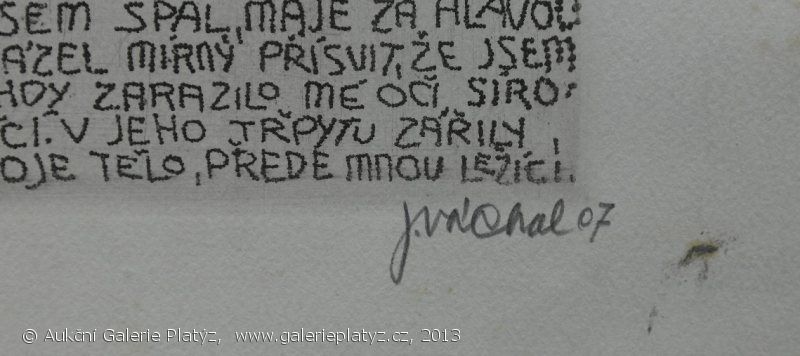 SEM SPAL, MAJE ZA HLAVOU
ÁZEL MÍRNÝ PŘÍSVIT, ŽE JSEM
HDY ZARAZILO MÉ OČI, SÍRO-
ČÍ. V JEHO TŘPYTU ZÁŘILY
OJE TĚLO, PŘEDE MNOU LEŽÍCÍ.
J. Váchal 07
© Aukční Galerie Platýz, www.galerieplatyz.cz, 2013